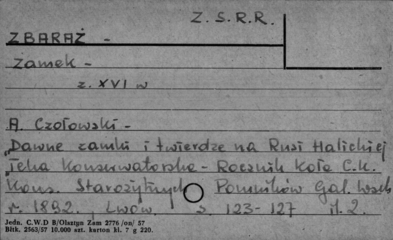 Z. S. R. R.
ZBARAŻ -
Zamek -
z. XVI w
A. Czołowski -
„Dawne zamki i twierdze na Rusi Halickiej
„Teka Konserwatorska - Rocznik Koła C.K.
Kons. Starożytnych Pomników Gal. Wsch
r. 1892. Lwów. s. 123-127 il. 2.
Jedn. C.W.D B/Olsztyn Zam 2776 /on/ 57
Bltk. 2563/57 10.000 szt. karton kl. 7 g 220.